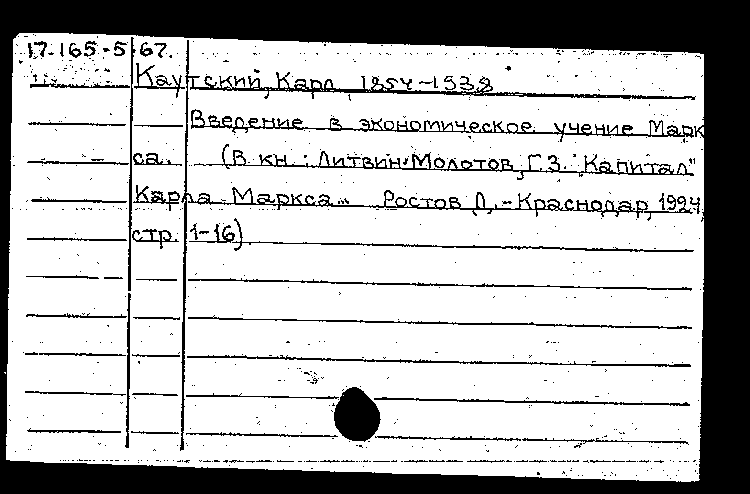 17.165-5.67.
Каутский, Карл, 1854-1938
Введение в экономическое учение Марк
са. (В кн.: Литвин-Молотов, Г.З. "Капитал"
Карла Маркса... Ростов Д, - Краснодар, 1924,
стр. 1-16)